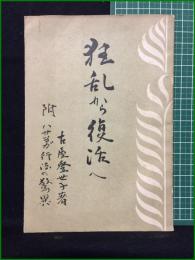 狂乱から復活へ
古屋登世子著
附 八丗万行流の驚異